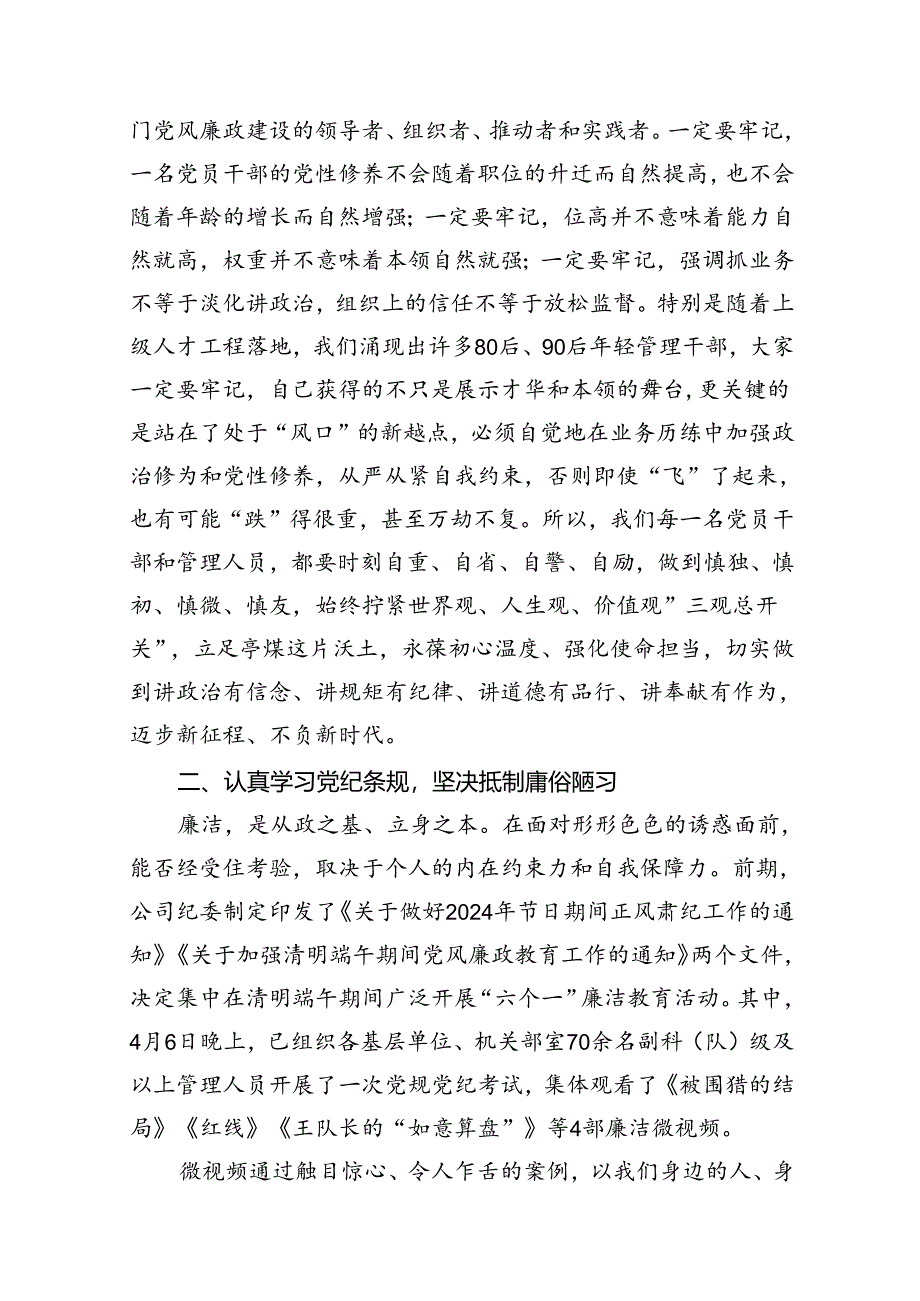 门党风廉政建设的领导者、组织者、推动者和实践者。一定要牢记，
一名党员干部的党性修养不会随着职位的升迁而自然提高，也不会
随着年龄的增长而自然增强；一定要牢记，位高并不意味着能力自
然就高，权重并不意味着本领自然就强；一定要牢记，强调抓业务
不等于淡化讲政治，组织上的信任不等于放松监督。特别是随着上
级人才工程落地，我们涌现出许多80后、90后年轻管理干部，大家
一定要牢记，自己获得的不只是展示才华和本领的舞台，更关键的
是站在了处于“风口”的新越点，必须自觉地在业务历练中加强政
治修为和党性修养，从严从紧自我约束，否则即使“飞”了起来，
也有可能“跌”得很重，甚至万劫不复。所以，我们每一名党员干
部和管理人员，都要时刻自重、自省、自警、自励，做到慎独、慎
初、慎微、慎友，始终拧紧世界观、人生观、价值观”三观总开
关”，立足亭煤这片沃土，永葆初心温度、强化使命担当，切实做
到讲政治有信念、讲规矩有纪律、讲道德有品行、讲奉献有作为，
迈步新征程、不负新时代。
二、认真学习党纪条规，坚决抵制庸俗陋习
廉洁，是从政之基、立身之本。在面对形形色色的诱惑面前，
能否经受住考验，取决于个人的内在约束力和自我保障力。前期，
公司纪委制定印发了《关于做好2024年节日期间正风肃纪工作的通
知》《关于加强清明端午期间党风廉政教育工作的通知》两个文件，
决定集中在清明端午期间广泛开展“六个一”廉洁教育活动。其中，
4月6日晚上，已组织各基层单位、机关部室70余名副科（队）级及
以上管理人员开展了一次党规党纪考试，集体观看了《被围猎的结
局》《红线》《王队长的“如意算盘”》等4部廉洁微视频。
微视频通过触目惊心、令人乍舌的案例，以我们身边的人、身